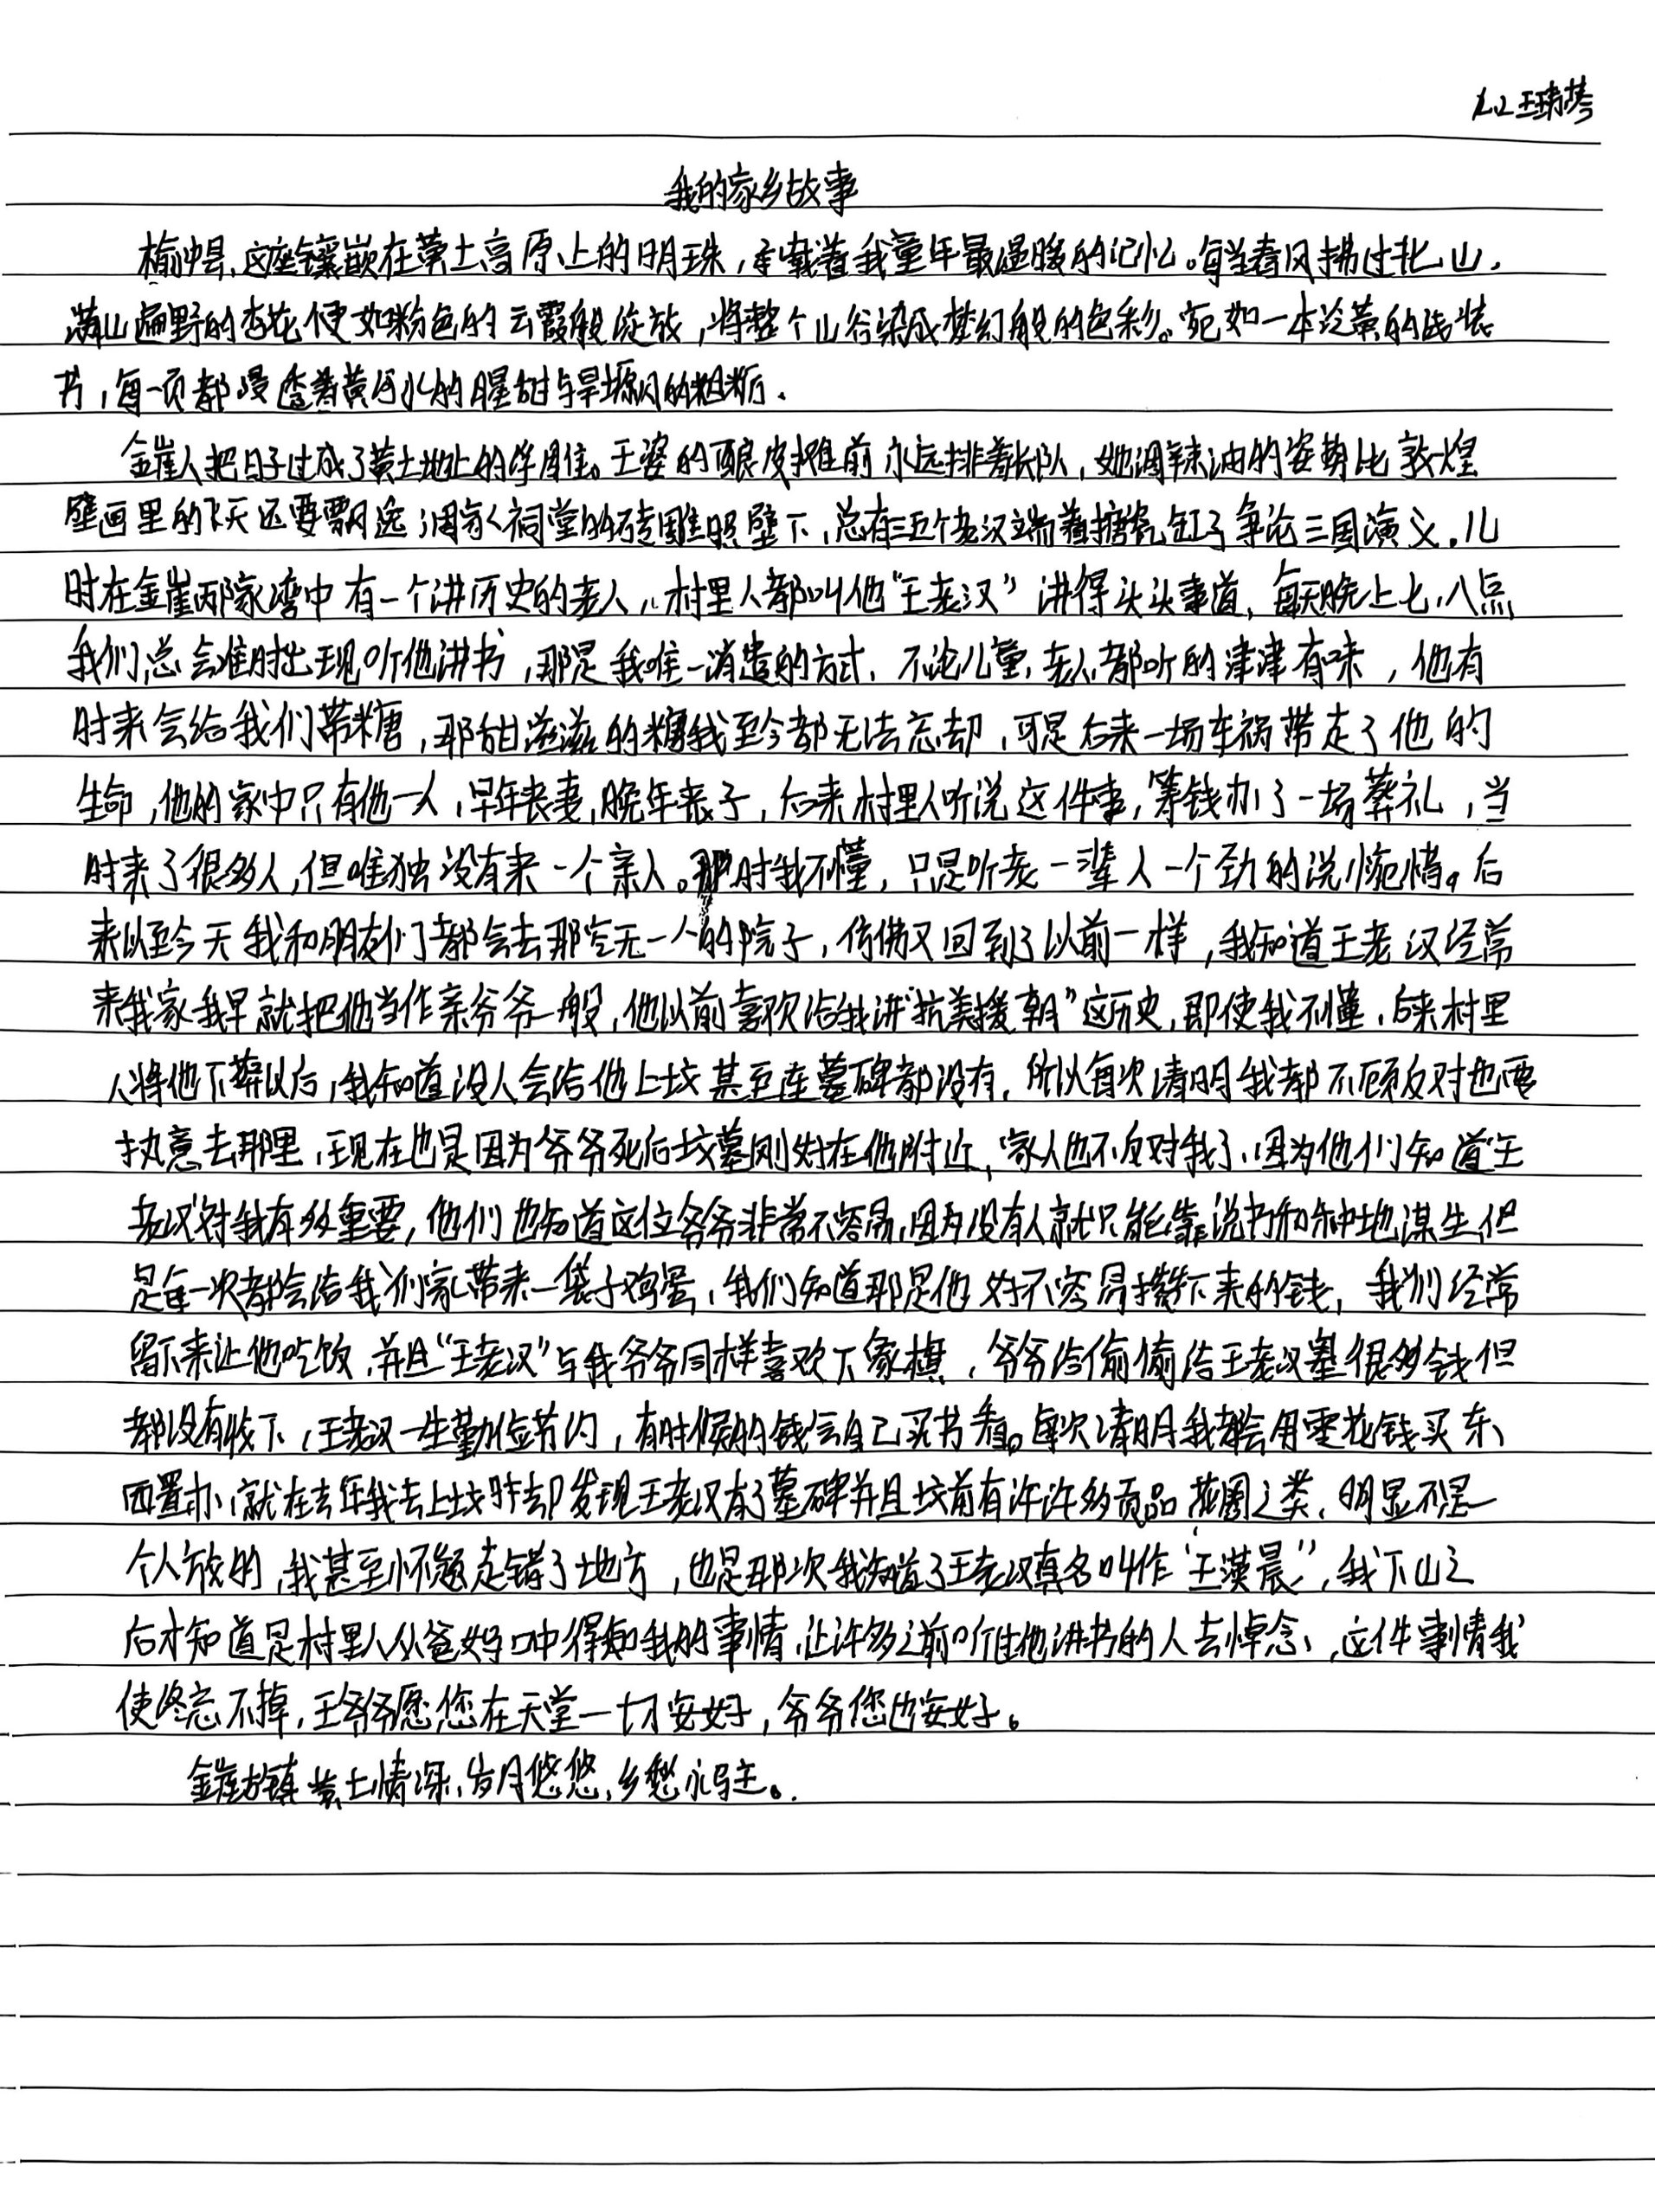 王琦琴
我的家乡故事
榆中县,这座镶嵌在黄土高原上的明珠,承载着我童年最温暖的记忆。每当春风拂过北山,
满山遍野的杏花便如粉色的云霞般绽放,将整个山谷染成梦幻般的色彩。宛如一本泛黄的线装
书,每一页都浸透着黄河水的腥甜与旱塬风的粗粝.
金崖人把日子过成了黄土地上的学问。王婆的酿皮摊前永远排着长队,她调辣油的姿势比敦煌
壁画里的飞天还要飘逸;周家祠堂的砖雕照壁下,总有三五个老汉端着搪瓷缸子争论三国演义.儿
时在金崖邴家湾中有一个讲历史的老人,村里人都叫他“王老汉”讲得头头事道,每天晚上七,八点
我们总会准时出现听他讲书,那是我唯一消遣的方式,不论儿童,老人,都听的津津有味,他有
时来会给我们带糖,那甜滋滋的糖我至今都无法忘却,可是后来一场车祸带走了他的
生命,他的家中只有他一人,早年丧妻,晚年丧子,后来村里人听说这件事,筹钱办了一场葬礼,当
时来了很多人,但唯独没有来一个亲人。那时我不懂,只是听老一辈人一个劲的说惋惜。后
来以至今天我和朋友们都会去那空无一人的院子,仿佛又回到了以前一样,我知道王老汉经常
来我家我早就把他当作亲爷爷一般,他以前喜欢给我讲“抗美援朝”这历史,即使我不懂,后来村里
人将他下葬以后,我知道没人会给他上坟甚至连墓碑都没有,所以每次清明我都不顾反对也要
执意去那里,现在也是因为爷爷死后坟墓刚好在他附近,家人也不反对我了,因为他们知道“王
老汉”对我有多重要,他们也知道这位爷爷非常不容易,因为没有人就只能靠说书和种地谋生,但
是每一次都会给我们家带来一袋子鸡蛋,我们知道那是他好不容易攒下来的钱,我们经常
留下来让他吃饭,并且“王老汉”与我爷爷同样喜欢下象棋,爷爷给偷偷给王老汉塞很多钱但
都没有收下,王老汉一生勤俭节约,有时候的钱会自己买书看。每次清明我都会用零花钱买东
西置办,就在去年我去上坟时却发现王老汉有了墓碑并且坟前有许许多贡品,花圈之类,明显不是一
个人放的,我甚至怀疑走错了地方,也是那次我知道了王老汉真名叫作“王漢晨”,我下山之
后才知道是村里人从爸妈口中得知我的事情,让许多之前听他讲书的人去悼念,这件事情我
使终忘不掉,王爷爷愿您在天堂一切安好,爷爷您也安好。
金崖古镇黄土情深,岁月悠悠,乡愁永驻。